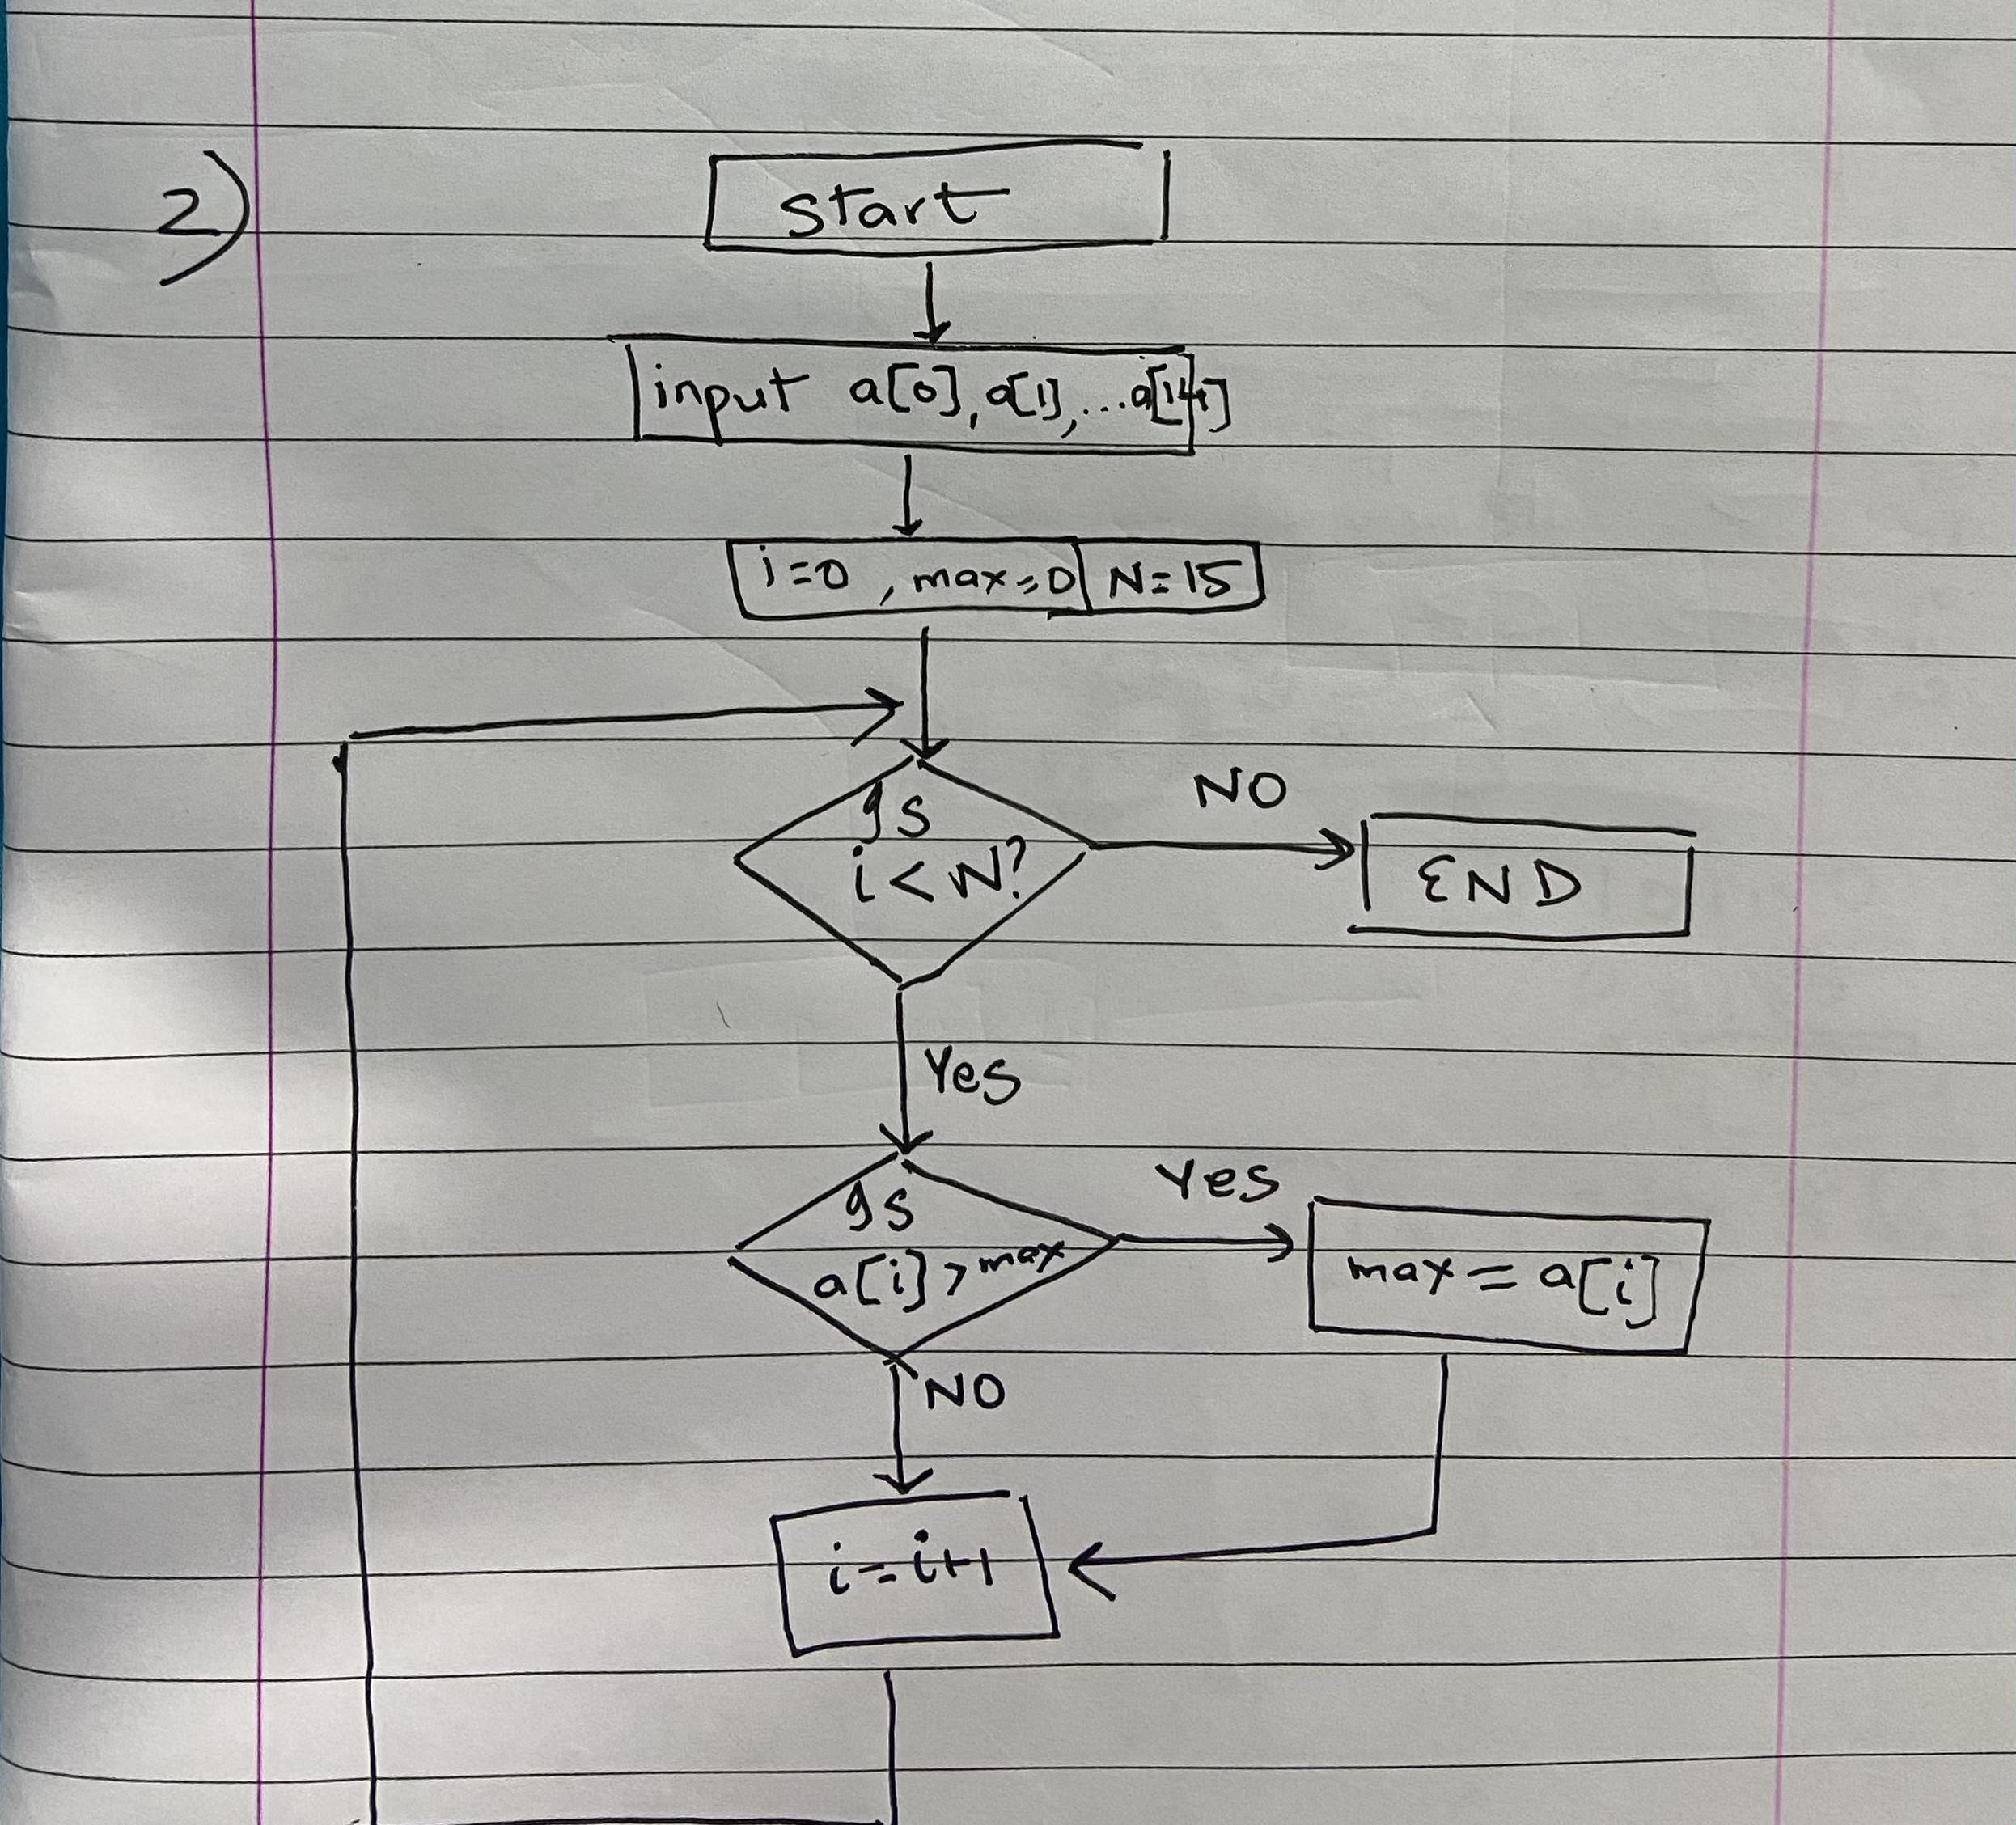 2)
start
input a[0], a[1], ... a[14]
i=0 , max=0 N=15
Is
i < N?
NO
END
Yes
Is
a[i] > max
Yes
max = a[i]
NO
i = i+1